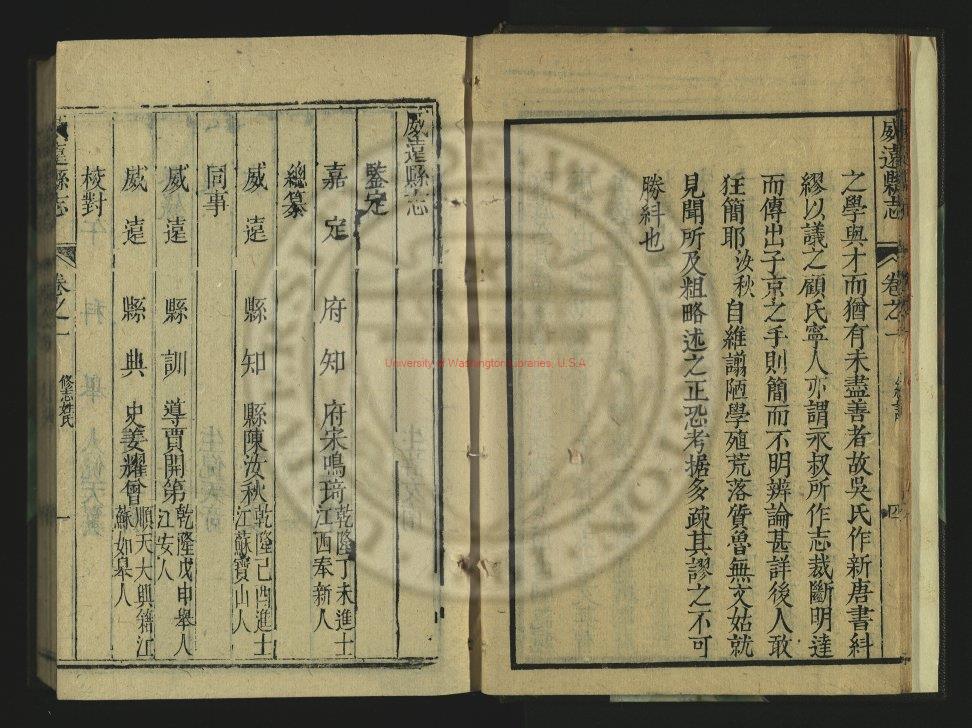 威遠縣志
卷之一
四
之學與才而猶有未盡善者故吳氏作新唐書糾
繆以議之顧氏寧人亦謂永叔所作志裁斷明達
而傳出子京之手則簡而不明辨論甚詳後人敢
狂簡耶汝秋自維謭陋學殖荒落質魯無文姑就
見聞所及粗略述之正恐考据多疎其謬之不可
勝糾也
威遠縣志
鑒定
嘉定府知府宋鳴琦乾隆丁未進士
江西奉新人
總纂
威遠縣知縣陳汝秋乾隆己酉進士
江蘇寶山人
同事
威遠縣訓導賈開第乾隆戊申舉人
江安人
威遠縣典史姜耀曾順天大興籍江
蘇如皋人
校對
威遠縣志
卷之一
修志姓氏
一
University of Washington Libraries, U.S.A